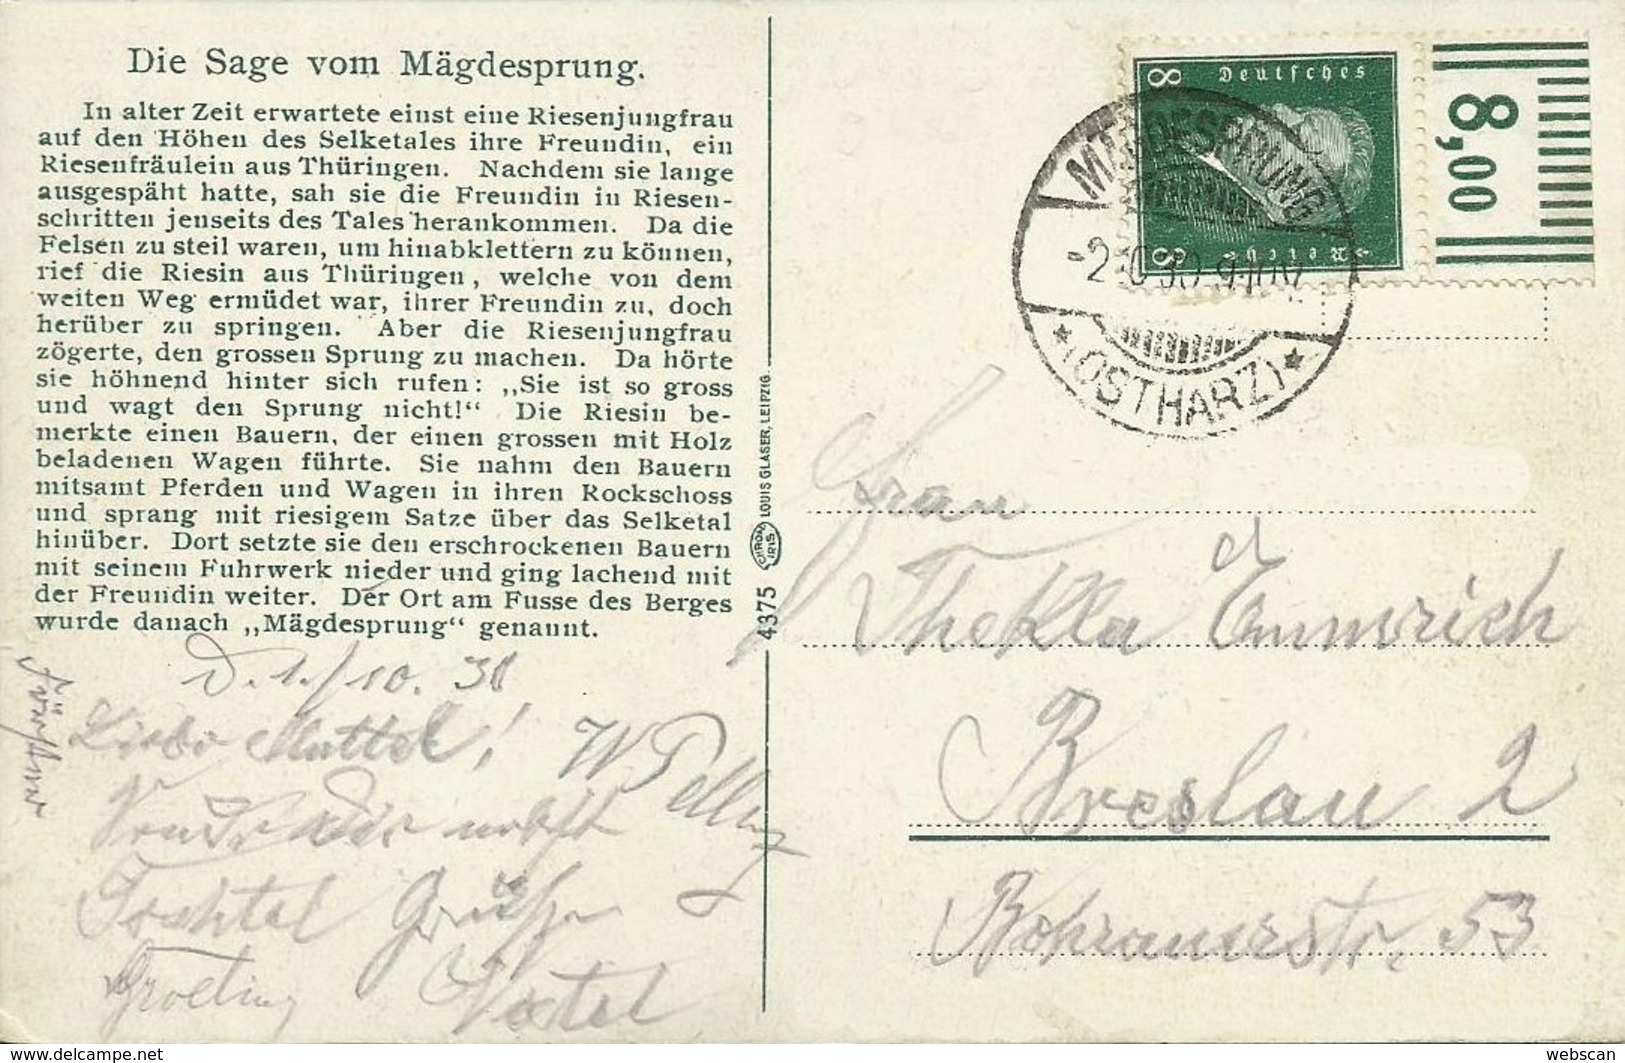 Die Sage vom Mägdesprung.
In alter Zeit erwartete einst eine Riesenjungfrau
auf den Höhen des Selketales ihre Freundin, ein
Riesenfräulein aus Thüringen. Nachdem sie lange
ausgespäht hatte, sah sie die Freundin in Riesen-
schritten jenseits des Tales herankommen. Da die
Felsen zu steil waren, um hinabklettern zu können,
rief die Riesin aus Thüringen, welche von dem
weiten Weg ermüdet war, ihrer Freundin zu, doch
herüber zu springen. Aber die Riesenjungfrau
zögerte, den grossen Sprung zu machen. Da hörte
sie höhnend hinter sich rufen: „Sie ist so gross
und wagt den Sprung nicht!“ Die Riesin be-
merkte einen Bauern, der einen grossen mit Holz
beladenen Wagen führte. Sie nahm den Bauern
mitsamt Pferden und Wagen in ihren Rockschoss
und sprang mit riesigem Satze über das Selketal
hinüber. Dort setzte sie den erschrockenen Bauern
mit seinem Fuhrwerk nieder und ging lachend mit
der Freundin weiter. Der Ort am Fusse des Berges
wurde danach „Mägdesprung“ genannt.
D. 1./10. 30
Liebe Muttel!
nebst
Grüße
4375
CHROM IRIS
LOUIS GLASER, LEIPZIG
8 Deutsches
8 Reich
8,00
MÄGDESPRUNG
(OSTHARZ)
Frau
Thekla Emmrich
Breslau 2
Bohrauerstr. 53
delcampe.net
webscan